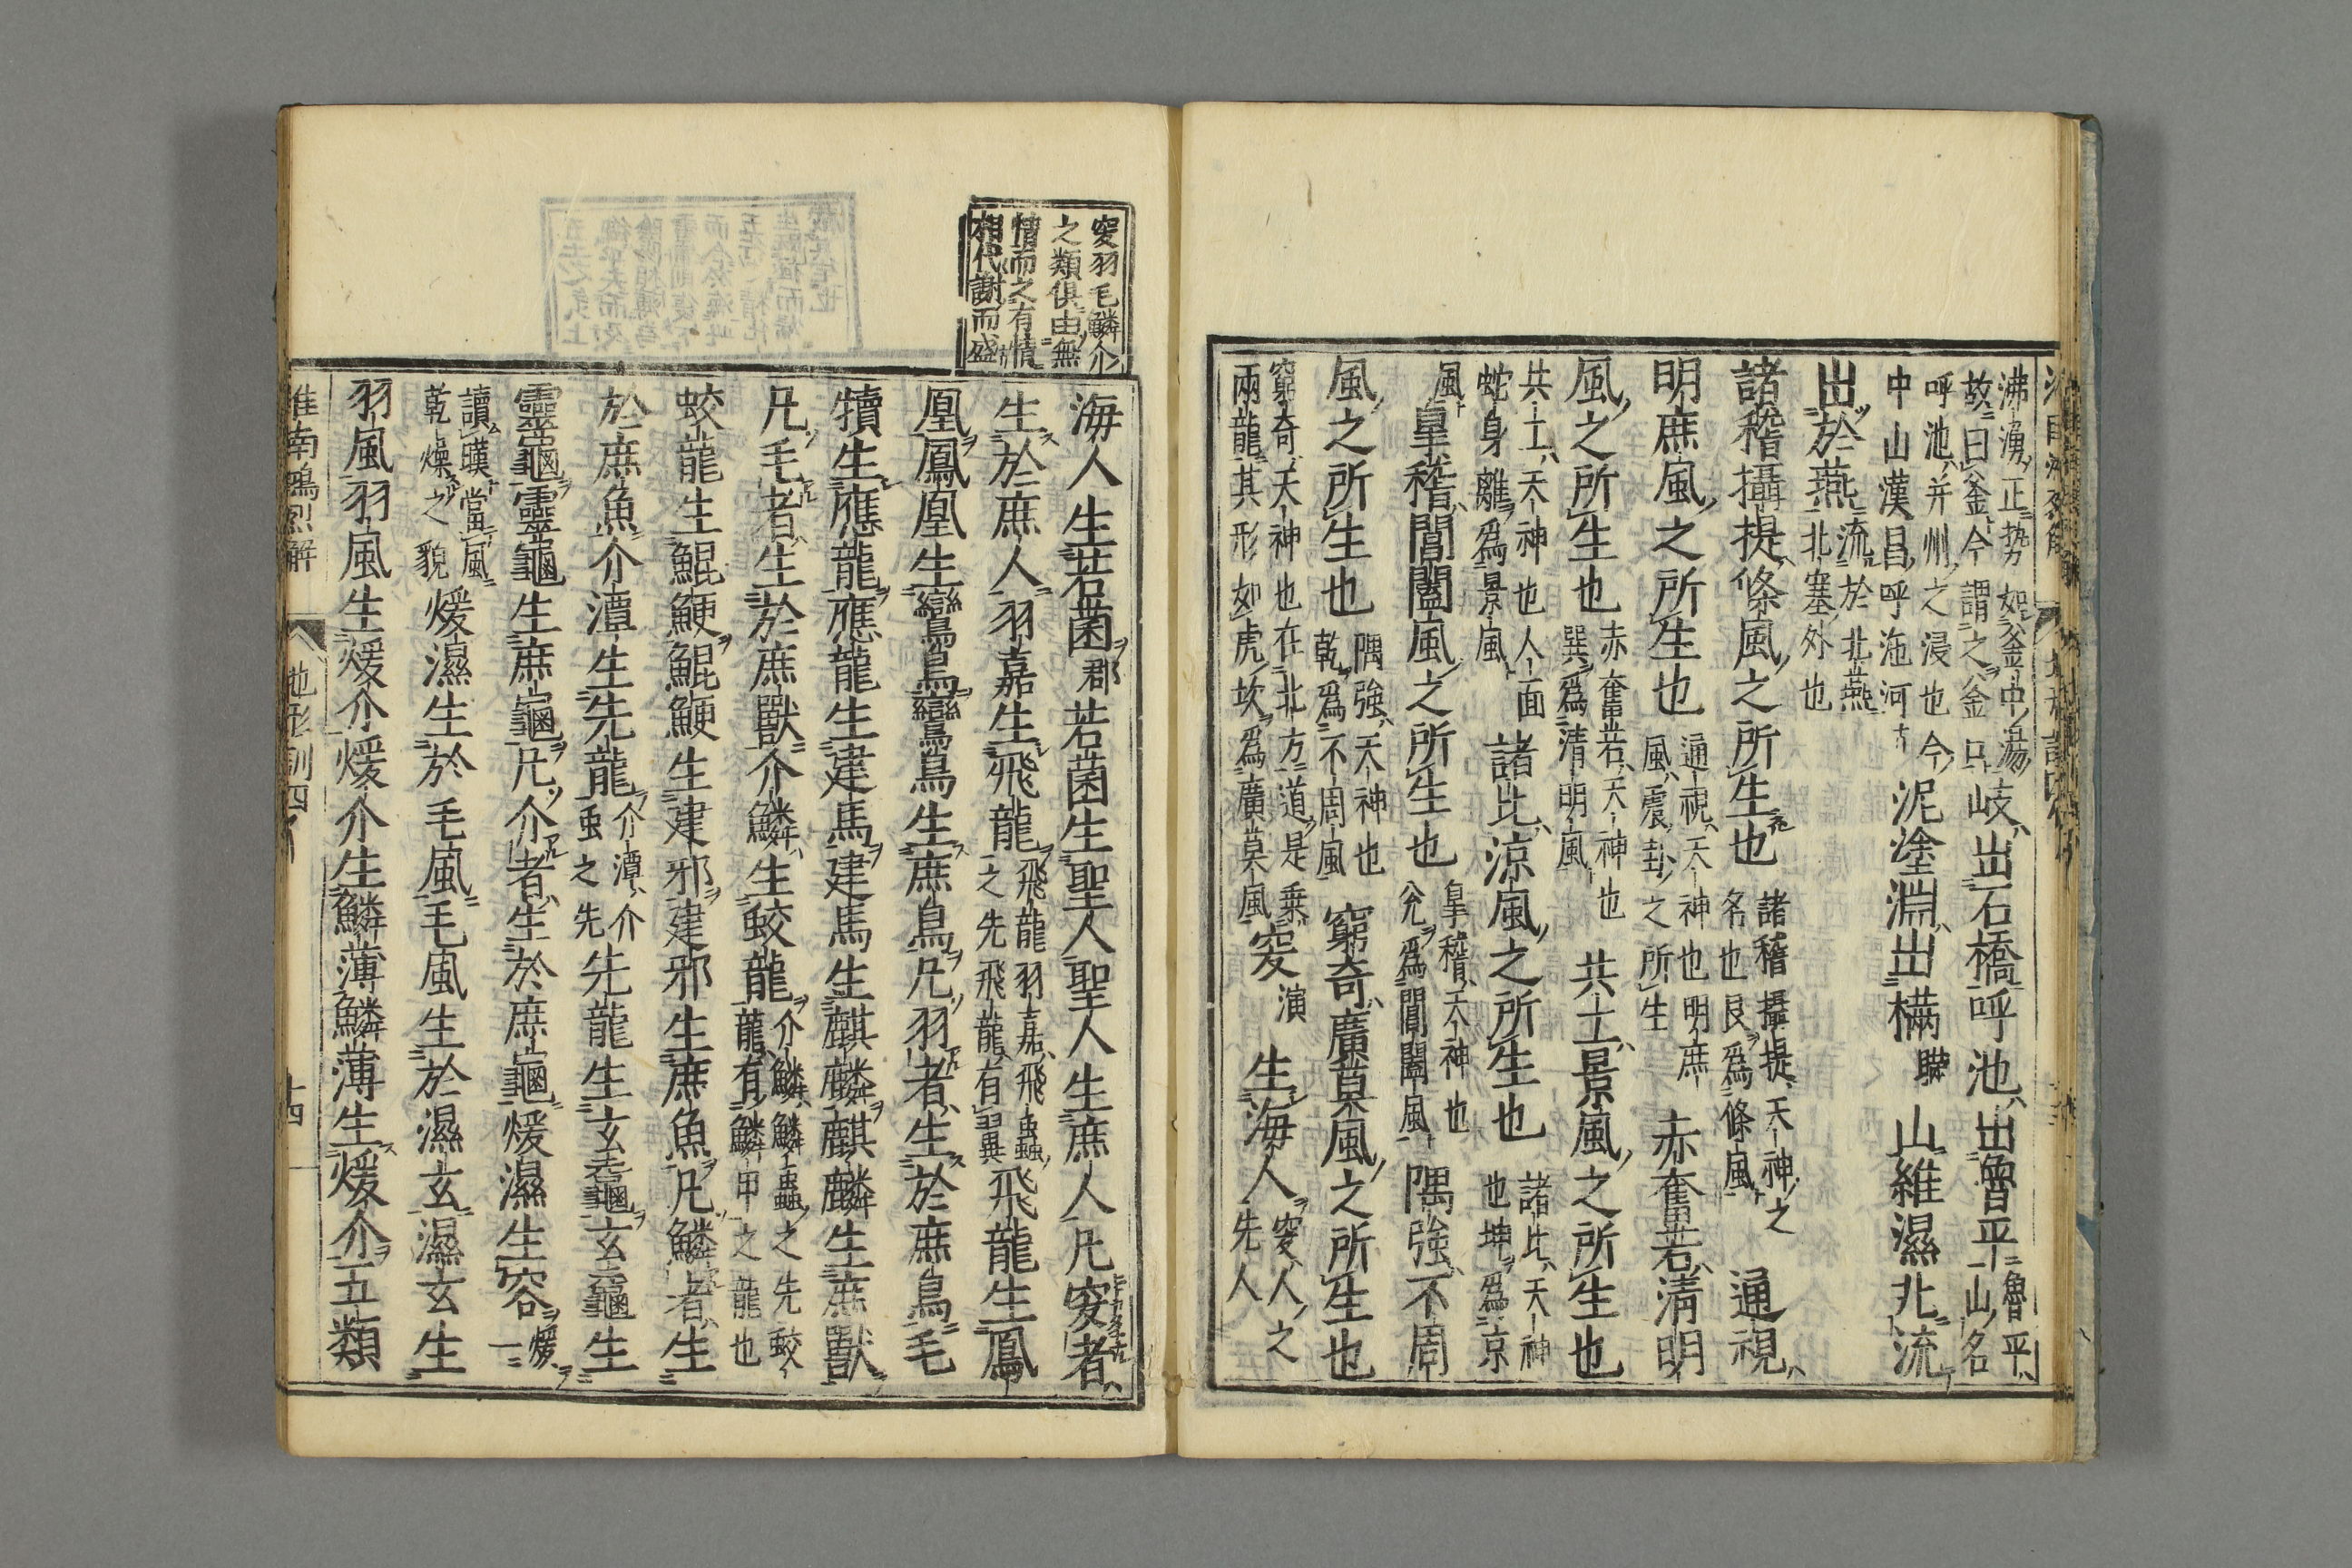 沸湧正勢如釜中湯
故曰釜今謂之釜口
岐出石橋呼池出魯平
魯平
山名
呼池并州之浸也今
中山漢昌呼沲河
泥塗淵出樠
山維濕北流
出於燕
流於北燕
北塞外也
諸稽攝提條風之所生也
諸稽攝提天神之
名也艮爲條風
通視
明庶風之所生也
通視天神也明庶
風震卦之所生
赤奮若清明
風之所生也
赤奮若天神也
巽爲清明風
共工景風之所生也
共工天神也人面
蛇身離爲景風
諸比涼風之所生也
諸比天神
也坤爲京
風
皐稽閶闔風之所生也
皐稽天神也
兊爲閶闔風
隅強不周
風之所生也
隅強天神也
乾爲不周風
窮奇廣莫風之所生也
窮奇天神也在北方道是乗
兩龍其形如虎坎爲廣莫風
窫
演
生海人
窫人之
先人
窫羽毛鱗介
之類俱由無
情而之有情
相代謝而盛
海人生若菌
郡
若菌生聖人聖人生庶人凡窫者
生於庶人羽嘉生飛龍
飛龍羽嘉飛蟲
之先飛龍有翼
飛龍生鳳
凰鳳凰生鸞鳥鸞鳥生庶鳥凡羽者生於庶鳥毛
犢生應龍應龍生建馬建馬生麒麟麒麟生庶獸
凡毛者生於庶獸介鱗生蛟龍
介鱗鱗蟲之先蛟
龍有鱗甲之龍也
蛟龍生鯤鯁鯤鯁生建邪建邪生庶魚凡鱗者生
於庶魚介潭生先龍
介潭介
虫之先
先龍生玄黿玄黿生
靈龜靈龜生庶龜凡介者生於庶龜煖濕生容
煖一
讀暵當風
乾燥之貌
煖濕生於毛風毛風生於濕玄濕玄生
羽風羽風生煗介煖介生鱗薄鱗薄生煖介五類
淮南鴻烈解
地形訓四
十四